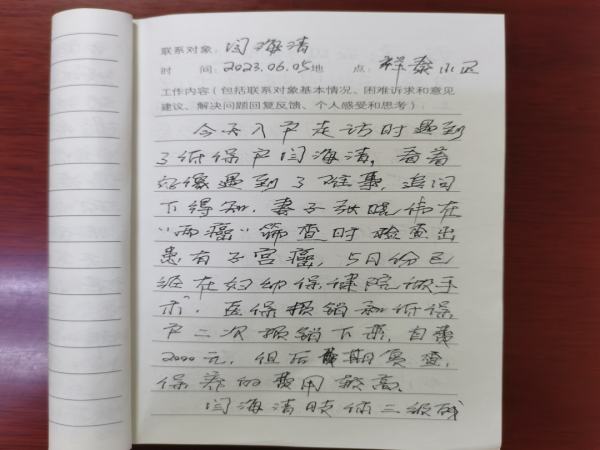 联系对象：闫海清
时　间：2023.06.05 地　点：祥泰小区
工作内容（包括联系对象基本情况、困难诉求和意见
建议、解决问题回复反馈、个人感受和思考）：
今天入户走访时遇到
了低保户闫海清，看着
好像遇到了难事，追问
下得知，妻子张晓伟在
“两癌”筛查时检查出
患有子宫癌，5月份已
经在妇幼保健院做手
术，医保报销和低保
户二次报销下来，自费
2000元，但后期复查，
保养的费用较高。
闫海清肢体三级残